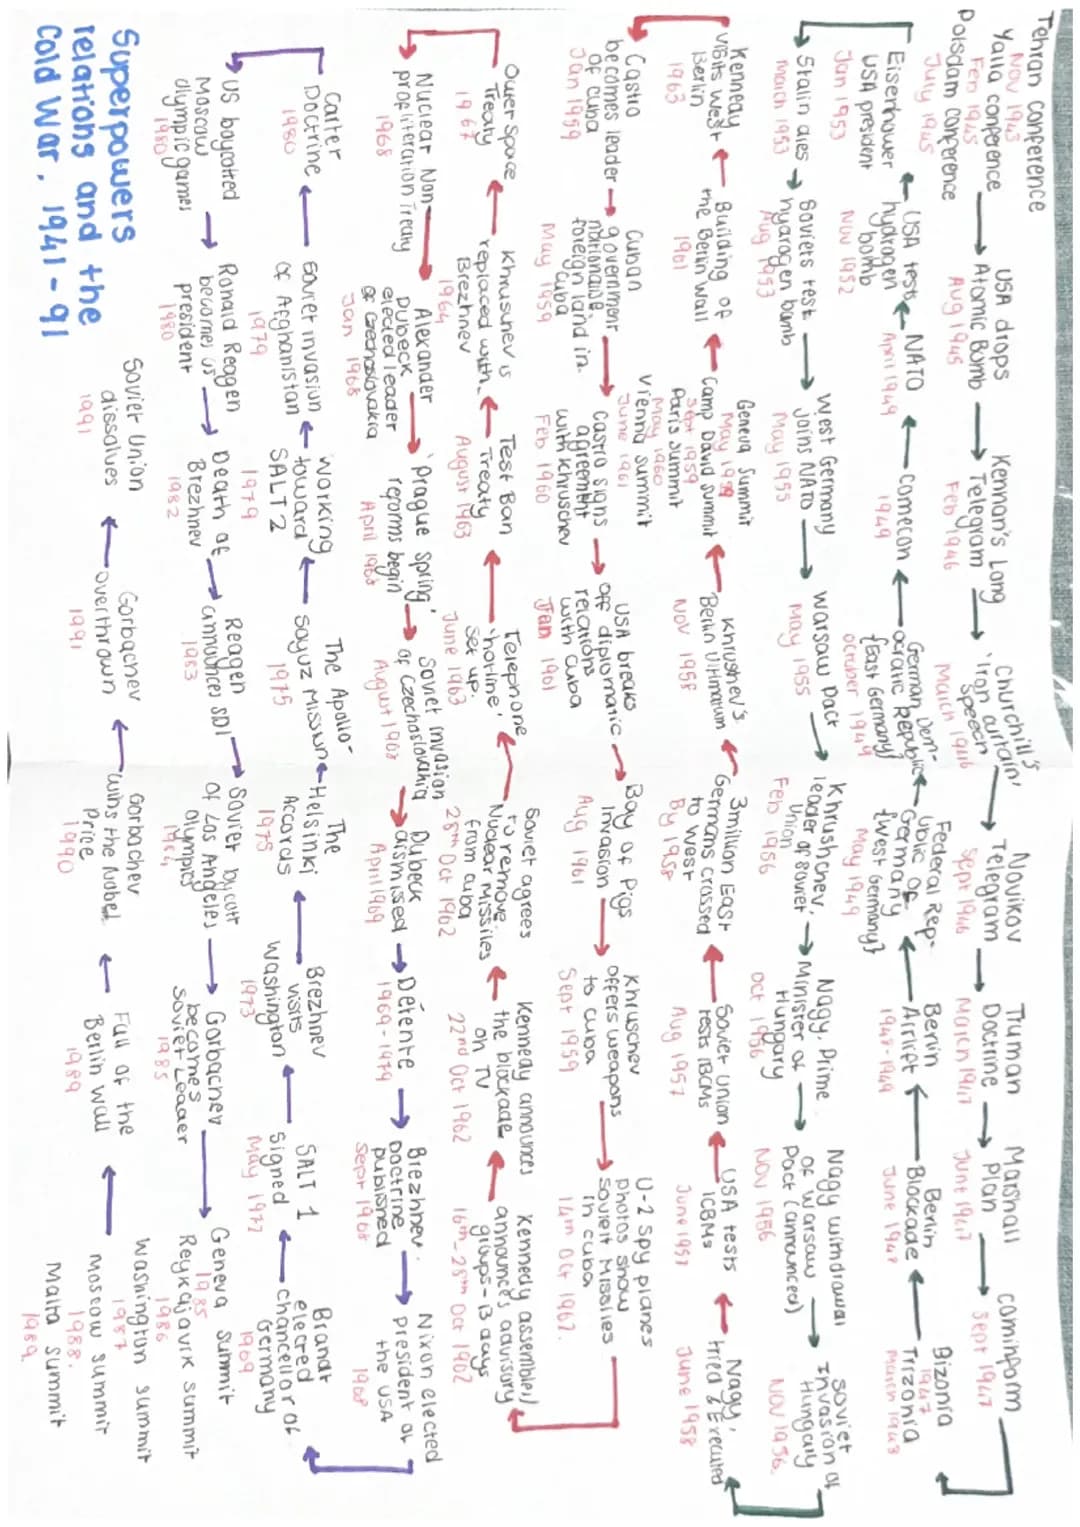 Superpowers
relations and the
Cold War, 1941-91
Tehran Conference
Nov 1943
Yalta conference
Feb 1945
Potsdam Conference
July 1945
USA drops
Atomic Bomb
Aug 1945
Kennan's Long
Telegram
Feb 1946
Churchill's
'Iron curtain'
Speech
March 1946
Novikov
Telegram
Sept 1946
Truman
Doctrine
March 1947
Marshall
Plan
June 1947
Cominform
Sept 1947
Bizonia
1947
Trizonia
March 1948
Berlin
Blockade
June 1948
Berlin
Airlift
1948-1949
Federal Rep-
ublic of
Germany
{West Germany}
May 1949
German Dem-
ocratic Republic
{East Germany}
October 1949
Comecon
1949
NATO
April 1949
USA tests
hydrogen
bomb
Nov 1952
Eisenhower
USA president
Jan 1953
Stalin dies
March 1953
Soviets test
hydrogen bomb
Aug 1953
West Germany
Joins NATO
May 1955
Warsaw Pact
May 1955
Khrushchev,
leader of Soviet
Union
Feb 1956
Nagy, Prime
Minister of
Hungary
Oct 1956
Nagy withdrawal
of Warsaw
Pact (announced)
Nov 1956
Soviet
Invasion of
Hungary
Nov 1956
Nagy,
tried & Executed
June 1958
USA tests
ICBMs
June 1957
Soviet Union
tests IBCMs
Aug 1957
3 million East
Germans crossed
to West
By 1958
Khrushev's
Berlin Ultimatum
Nov 1958
Geneva Summit
May 1959
Camp David Summit
Sept 1959
Paris Summit
May 1960
Vienna Summit
June 1961
Building of
the Berlin Wall
1961
Kennedy
visits West
Berlin
1963
Castro
becomes leader
of Cuba
Jan 1959
Cuban
government
nationalise
foreign land in
Cuba
May 1959
Castro signs
agreement
with Khruschev
Feb 1960
USA breaks
off diplomatic
relations
with Cuba
Jan 1961
Bay of Pigs
Invasion
Aug 1961
Khruschev
offers weapons
to Cuba
Sept 1959
U-2 spy planes
Photos show
Soviet Missiles
in Cuba
14th Oct 1962.
Kennedy assembles/
announces advisory
groups-13 days
16th-28th Oct 1962
Kennedy announces
the blockade
on TV
22nd Oct 1962
Soviet agrees
to remove
Nuclear Missiles
from Cuba
28th Oct 1962
Telephone
'hotline'
set up.
June 1963
Test Ban
Treaty
August 1963
Khrushev is
replaced with
Brezhnev
1964
Outer Space
Treaty
1967
Nuclear Non-
proplliteration Treaty
1968
Alexander
Dubeck
elected leader
of Czechoslovakia
Jan 1968
'Prague Spring'
reforms begin
April 1968
Soviet Invasion
of Czechoslovakia
August 1968
Dubeck
dismissed
April 1969
Détente
1969-1979
Brezhnev
Doctrine
published
Sept 1968
Nixon elected
President of
the USA
1968
Brandt
elected
chancellor of
Germany
1969
SALT 1
Signed
May 1972
Brezhnev
visits
Washington
1973
The
Helsinki
Accords
1975
The Apollo-
Soyuz Mission
1975
working
toward
SALT 2
1979
Soviet invasion
of Afghanistan
1979
Carter
Doctrine
1980
US boycotted
Moscow
olympic games
1980
Ronald Reagen
becomes US
president
1980
Death of
Brezhnev
1982
Reagen
announces SDI
1983
Soviet boycott
of Los Angeles
Olympics
1984
Gorbachev
becomes
Soviet Leader
1985
Geneva Summit
1985
Reykjavik Summit
1986
Washington Summit
1987
Moscow Summit
1988.
Malta Summit
1989.
Fall of the
Berlin Wall
1989
Gorbachev
wins the Nobel
Price
1990
Gorbachev
overthrown
1991
Soviet Union
dissolves
1991